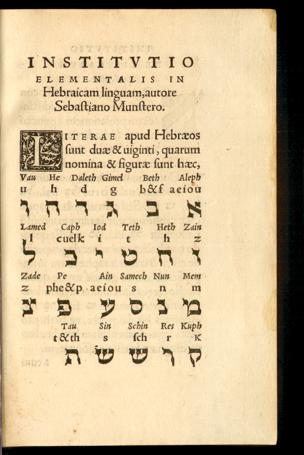 INSTITVTIO
ELEMENTALIS IN
Hebraicam linguam, autore
Sebastiano Munstero.
LITERAE apud Hebræos
sunt duæ & uiginti, quarum
nomina & figuræ sunt hæc,
Vau He Daleth Gimel Beth Aleph
u h d g b&f aeiou
א ב ג ד ה ו
Lamed Caph Iod Teth Heth Zain
l cuelk i t h z
ז ח ט י כ ל
Zade Pe Ain Samech Nun Mem
z phe&p aeiou s n m
מ נ ס ע פ צ
Tau Sin Schin Res Kuph
t&th s sch r K
ק ר ש ש ת